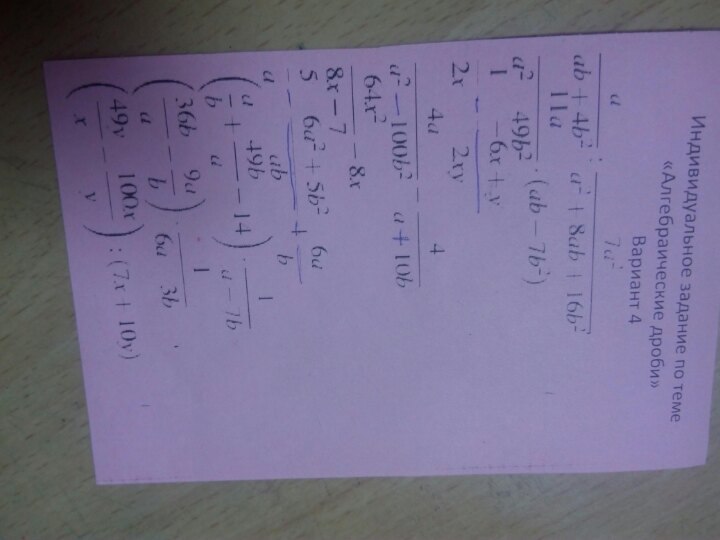 Индивидуальное задание по теме
«Алгебраические дроби»
Вариант 4
a 7a²
ab + 4b² : a² + 8ab + 16b²
11a
a² 49b² · (ab − 7b²)
1 −6x + y
2x − 2xy
4a 4
a² − 100b² − a + 10b
64x²
8x − 7 − 8x
5 6a² + 5b² 6a
a − ab + b
(a/b + 49b/a − 14) · 1/(a − 7b)
(36b/a − 9a/b) · 1/(6a 3b)
(49y/x − 100x/y) : (7x + 10y)